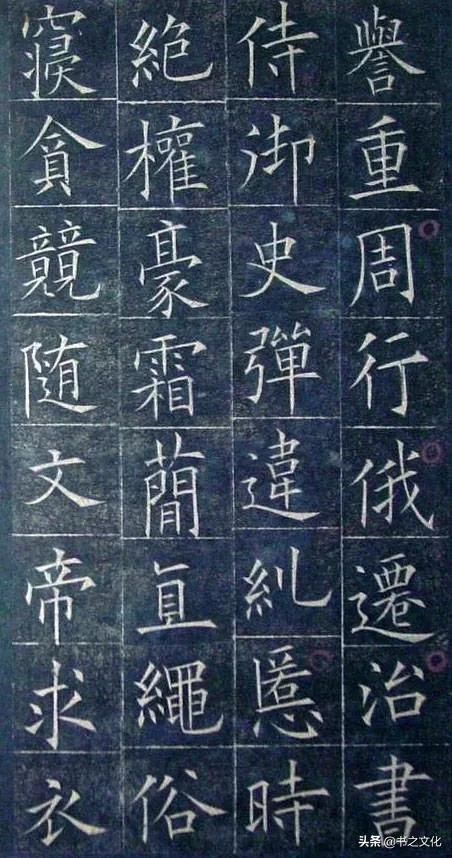 譽重周行俄遷治書
侍御史彈違糺慝時
絶權豪霜蕳直繩俗
寢貪競随文帝求衣
头条 @书之文化